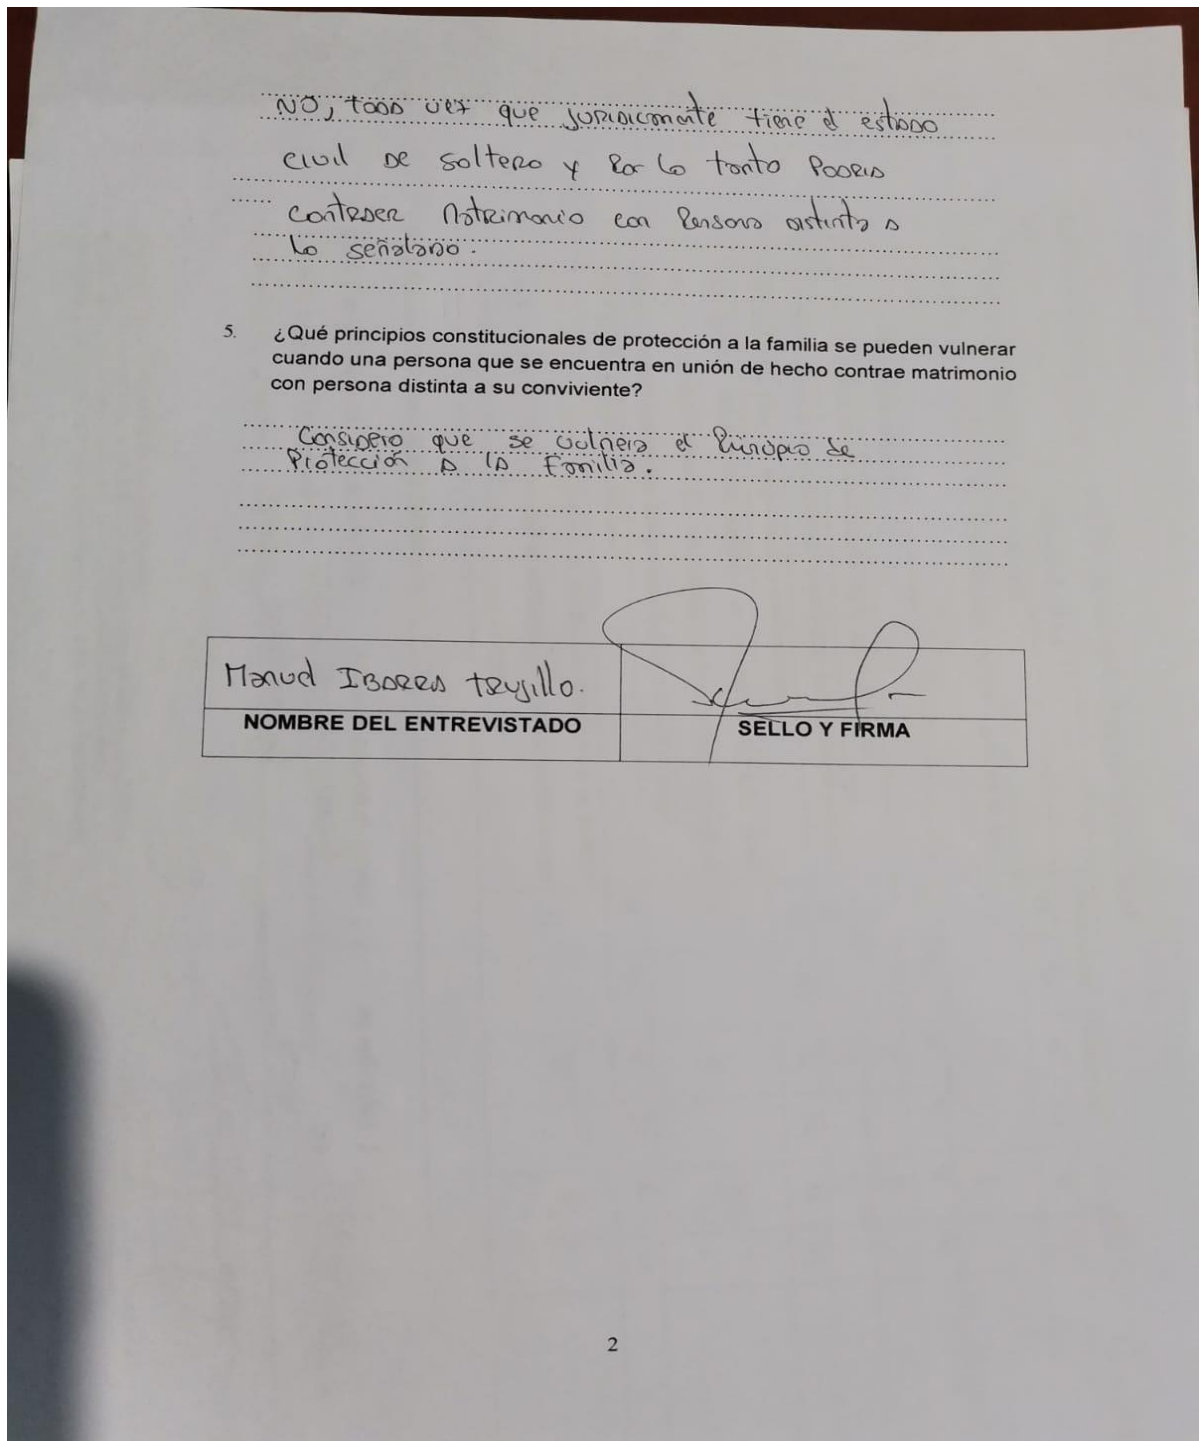 NO, toda vez que juridicamente tiene el estado
civil de soltero y por lo tanto podria
contraer Matrimonio con persona distinta a
lo señalado.
5. ¿Qué principios constitucionales de protección a la familia se pueden vulnerar
cuando una persona que se encuentra en unión de hecho contrae matrimonio
con persona distinta a su conviviente?
Considero que se vulnera el Principio de
Protección a la Familia.
Manuel Ibarra Trujillo.
NOMBRE DEL ENTREVISTADO
SELLO Y FIRMA
2